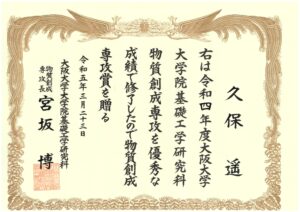 久保　遥
右は令和四年度大阪大学
大学院基礎工学研究科
物質創成専攻を優秀な
成績で修了したので物質創成
専攻賞を贈る
令和五年三月二十三日
大阪大学大学院基礎工学研究科
物質創成
専攻長 宮坂　博